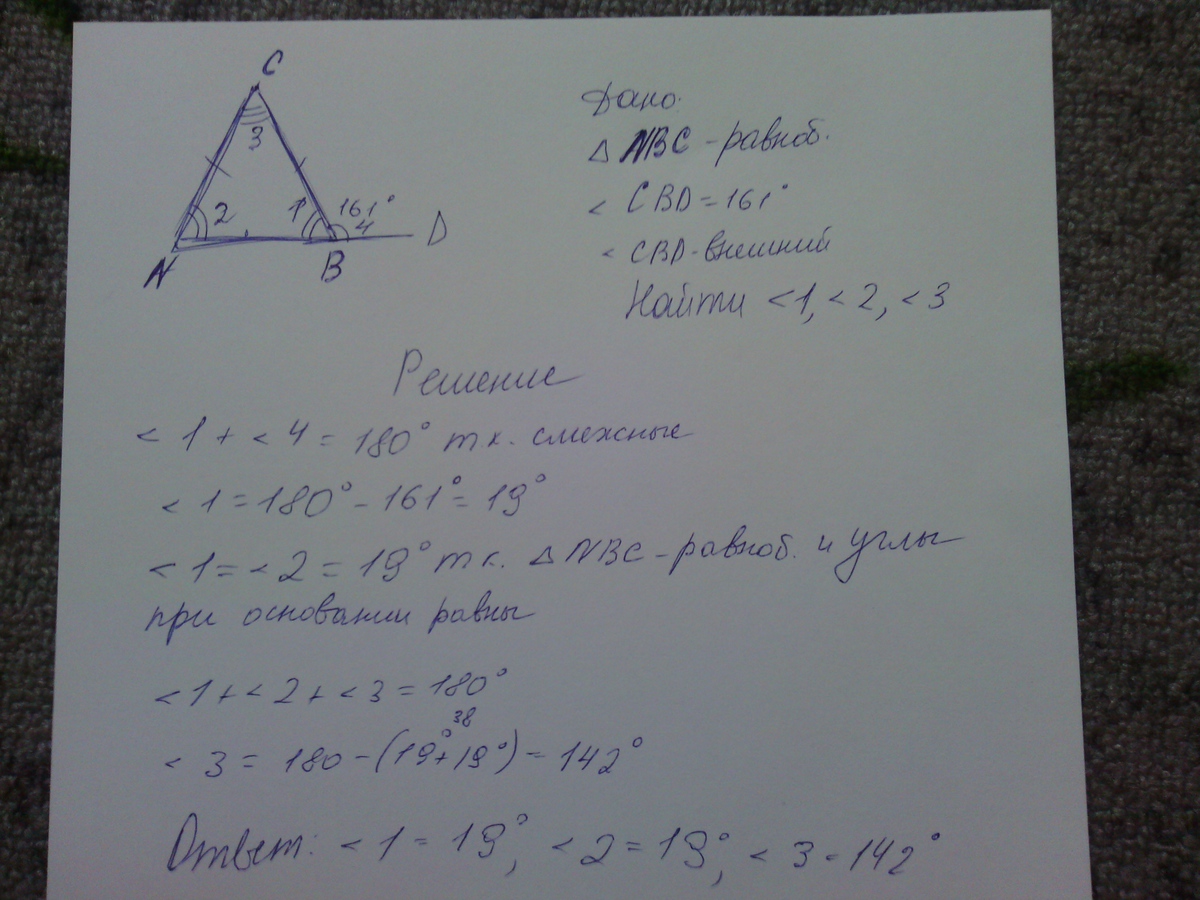 C
3
2
1
161°
4
D
N
B
Дано:
△ NBC - равноб.
< CBD = 161°
< CBD - внешний
Найти < 1, < 2, < 3
Решение
< 1 + < 4 = 180° т к. смежные
< 1 = 180° - 161° = 19°
< 1 = < 2 = 19° т к. △ NBC - равноб. и углы
при основании равны
< 1 + < 2 + < 3 = 180°
38
< 3 = 180 - (19° + 19°) = 142°
Ответ: < 1 = 19°, < 2 = 19°, < 3 = 142°